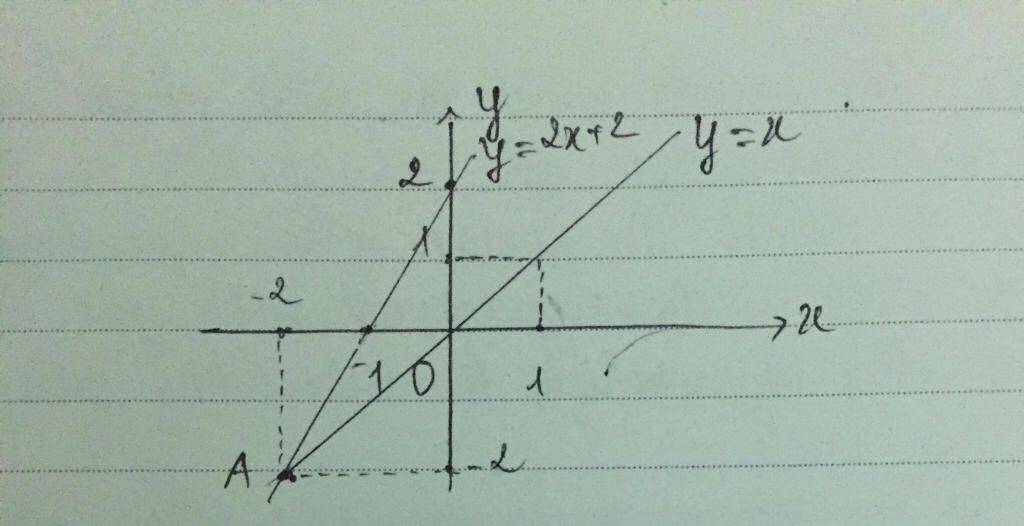 y
y=2x+2
y=x
2
1
-2
x
-1
0
1
A
-2